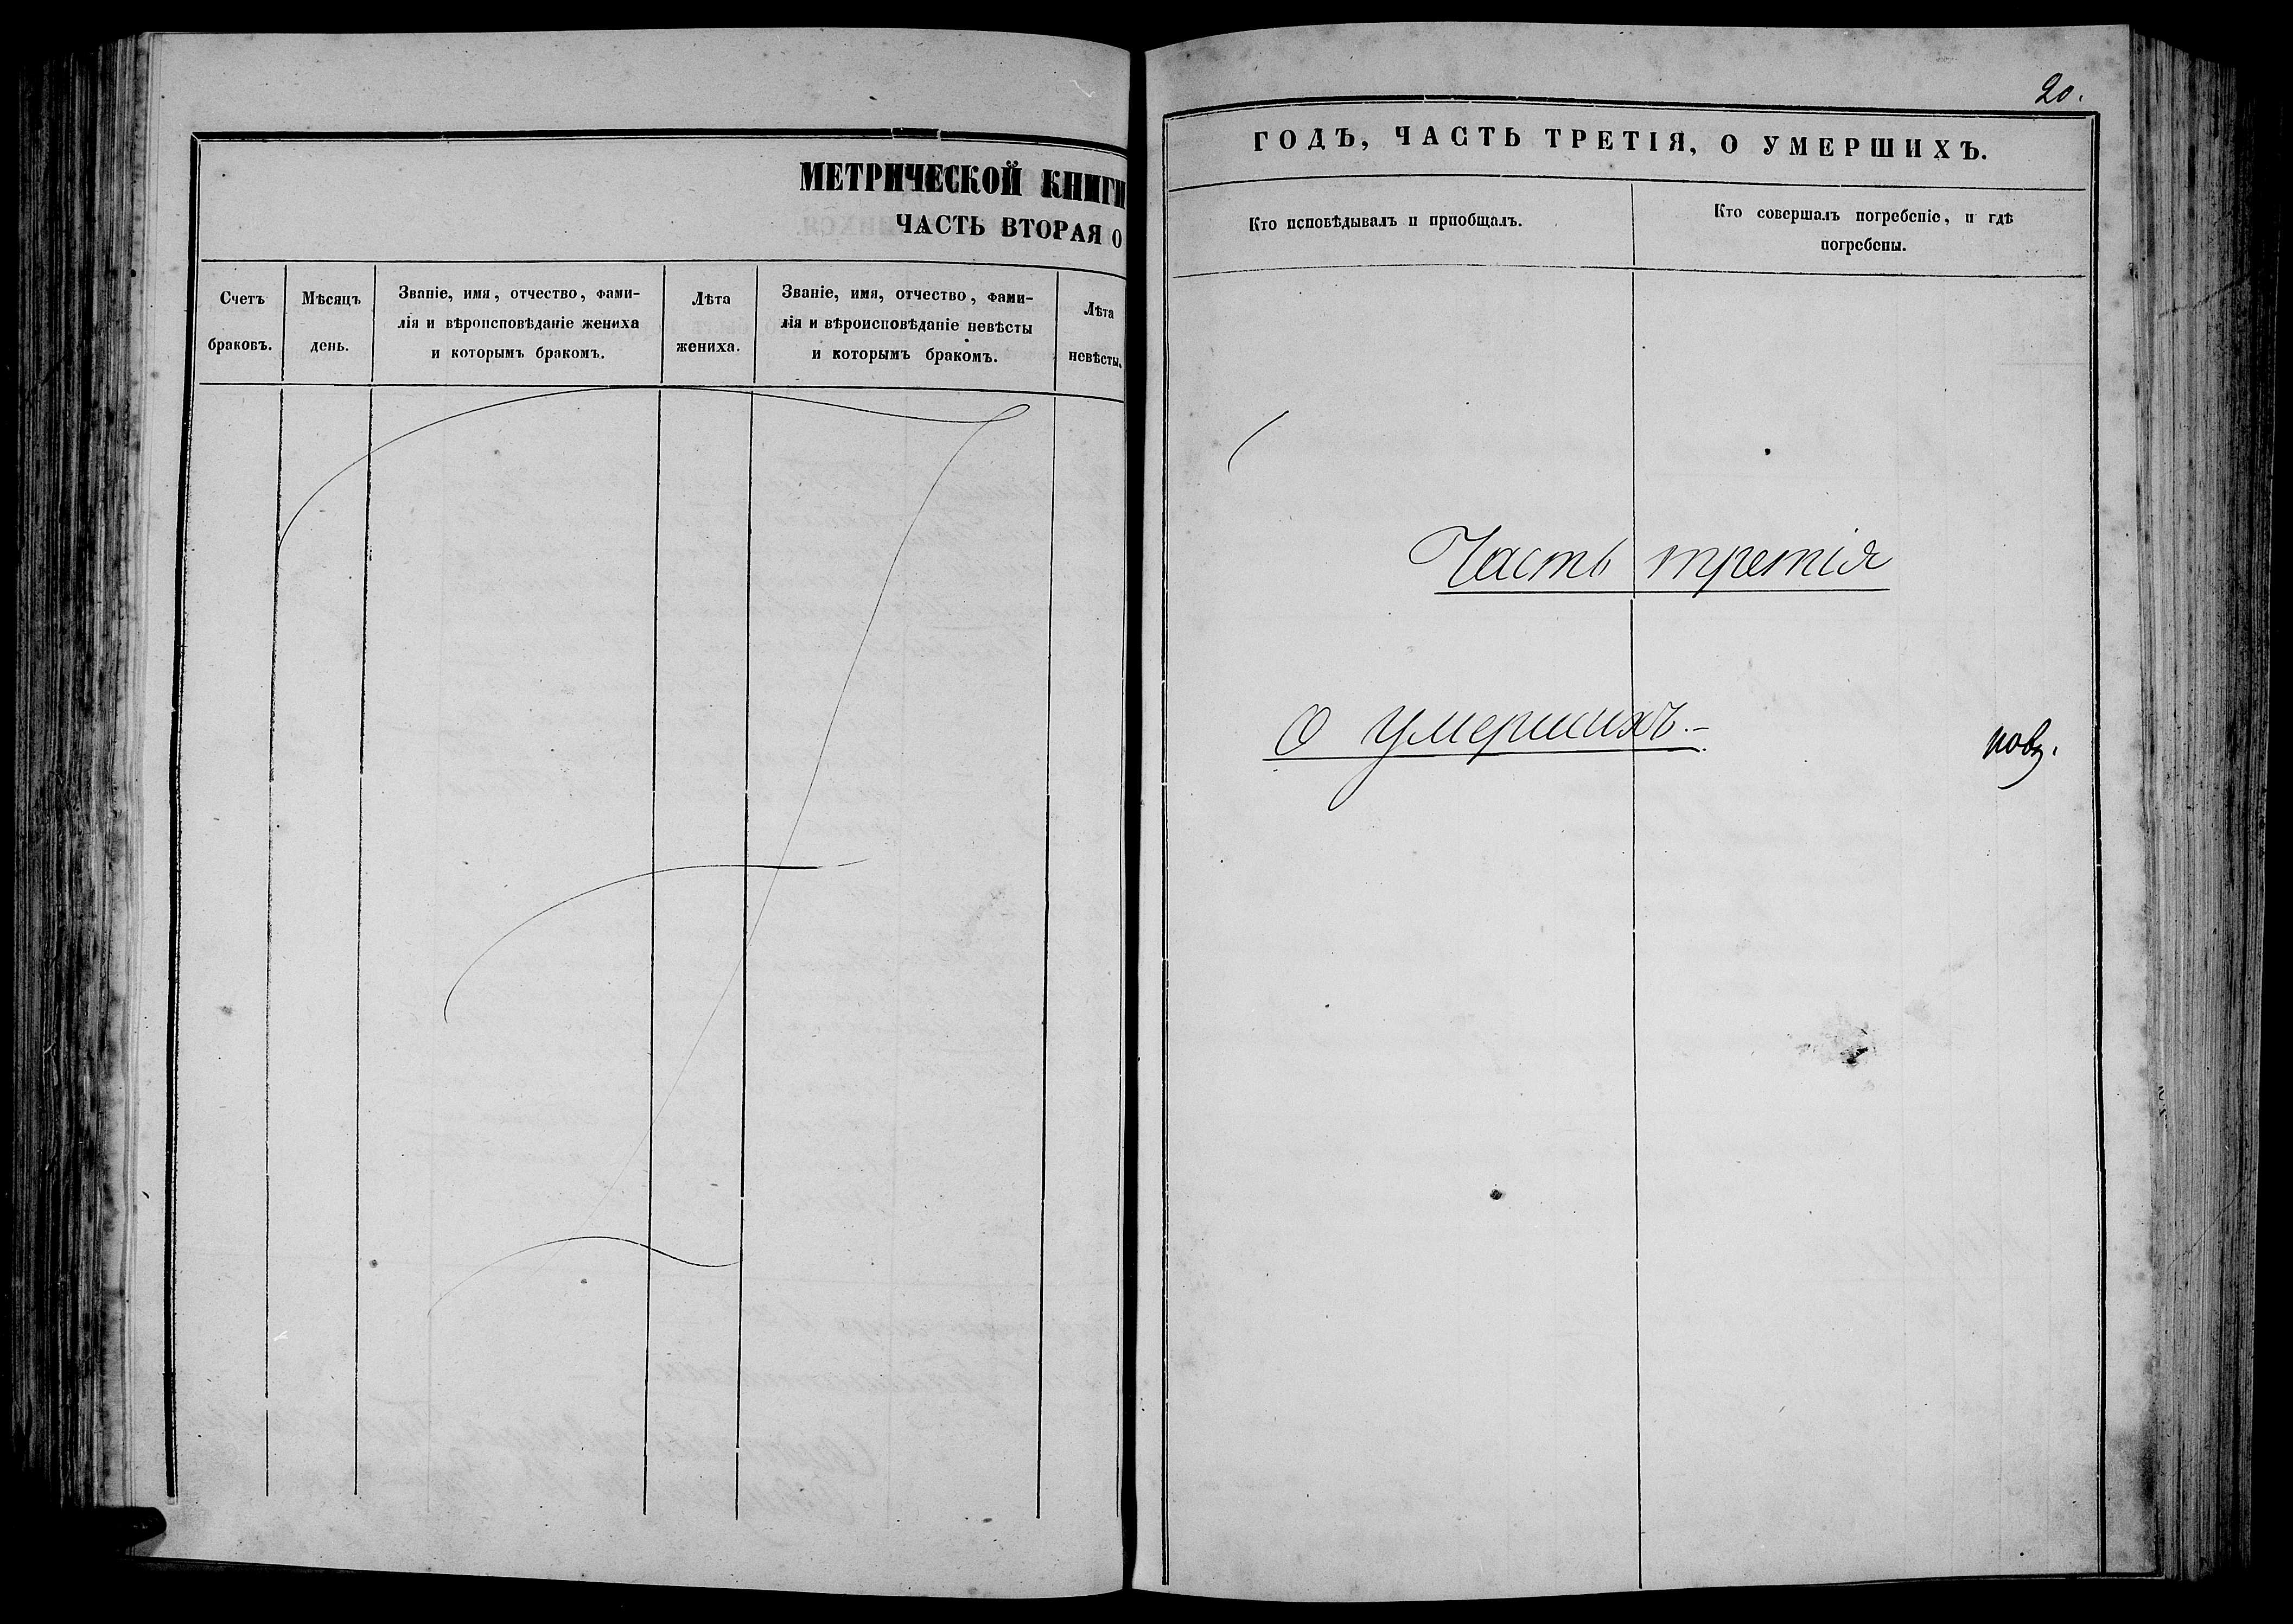 МЕТРИЧЕСКОЙ КНИГИ
ЧАСТЬ ВТОРАЯ О
Счетъ
браковъ.
Мѣсяцъ
день.
Званіе, имя, отчество, фами-
лія и вѣроисповѣданіе жениха
и которымъ бракомъ.
Лѣта
жениха.
Званіе, имя, отчество, фами-
лія и вѣроисповѣданіе невѣсты
и которымъ бракомъ.
Лѣта
невѣсты.
20.
ГОДЪ, ЧАСТЬ ТРЕТІЯ, О УМЕРШИХЪ.
Кто исповѣдывалъ и пріобщалъ.
Кто совершалъ погребеніе, и гдѣ
погребены.
Часть третія
О умершихъ.-